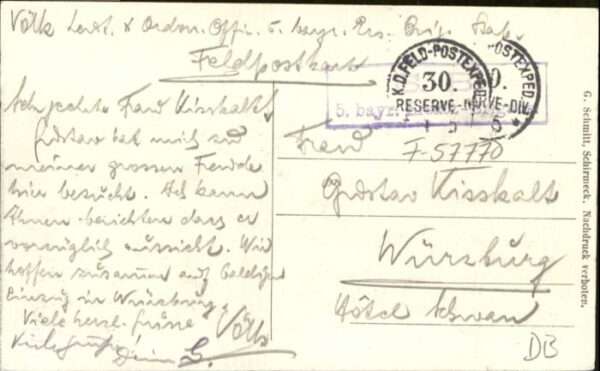 Völk Leut. & Ordon. Offiz. 5. bayr. Res. Brig. Stab.
Feldpostkarte
Sehr geehrte Frau Kisskalt!
Gustav hat mich zu
meiner grossen Freude
hier besucht. Ich kann
Ihnen berichten dass er
vorzüglich aussieht. Wir
hoffen zusammen auf baldigen
Einzug in Würzburg.
Viele herzl. Grüsse
Völk
Viele Grüsse Dein G.
K.D.FELD-POSTEXPED.
30.
RESERVE-DIV.
5. bayr.
Frau
F-57770
Gustav Kisskalt
Würzburg
Hôtel Schwan
DB
G. Schmitt, Schirmeck. Nachdruck verboten.